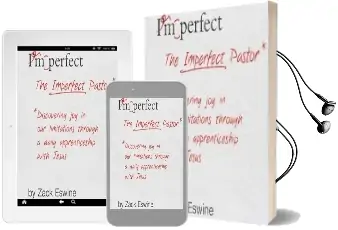 I'm perfect
The Imperfect Pastor*
*Discovering joy in
our limitations through
a daily apprenticeship
with Jesus
by Zack Eswine
I'm perfect
The Imperfect Pastor*
*Discovering joy in
our limitations through
a daily apprenticeship
with Jesus
I'm perfect
The Imperfect Pastor*
ering joy in
itations through
apprenticeship
Jesus
Eswine